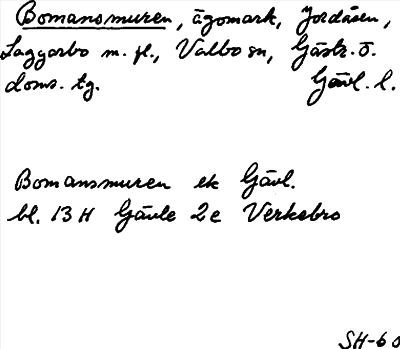 Bomansmuren, ägomark, Jordåsen,
Laggarbo m. fl., Valbo sn, Gästr. ö.
doms. tg. Gävl. l.
Bomansmuren ek Gävl.
bl. 13 H Gävle 2 e Verkebro
SH-60